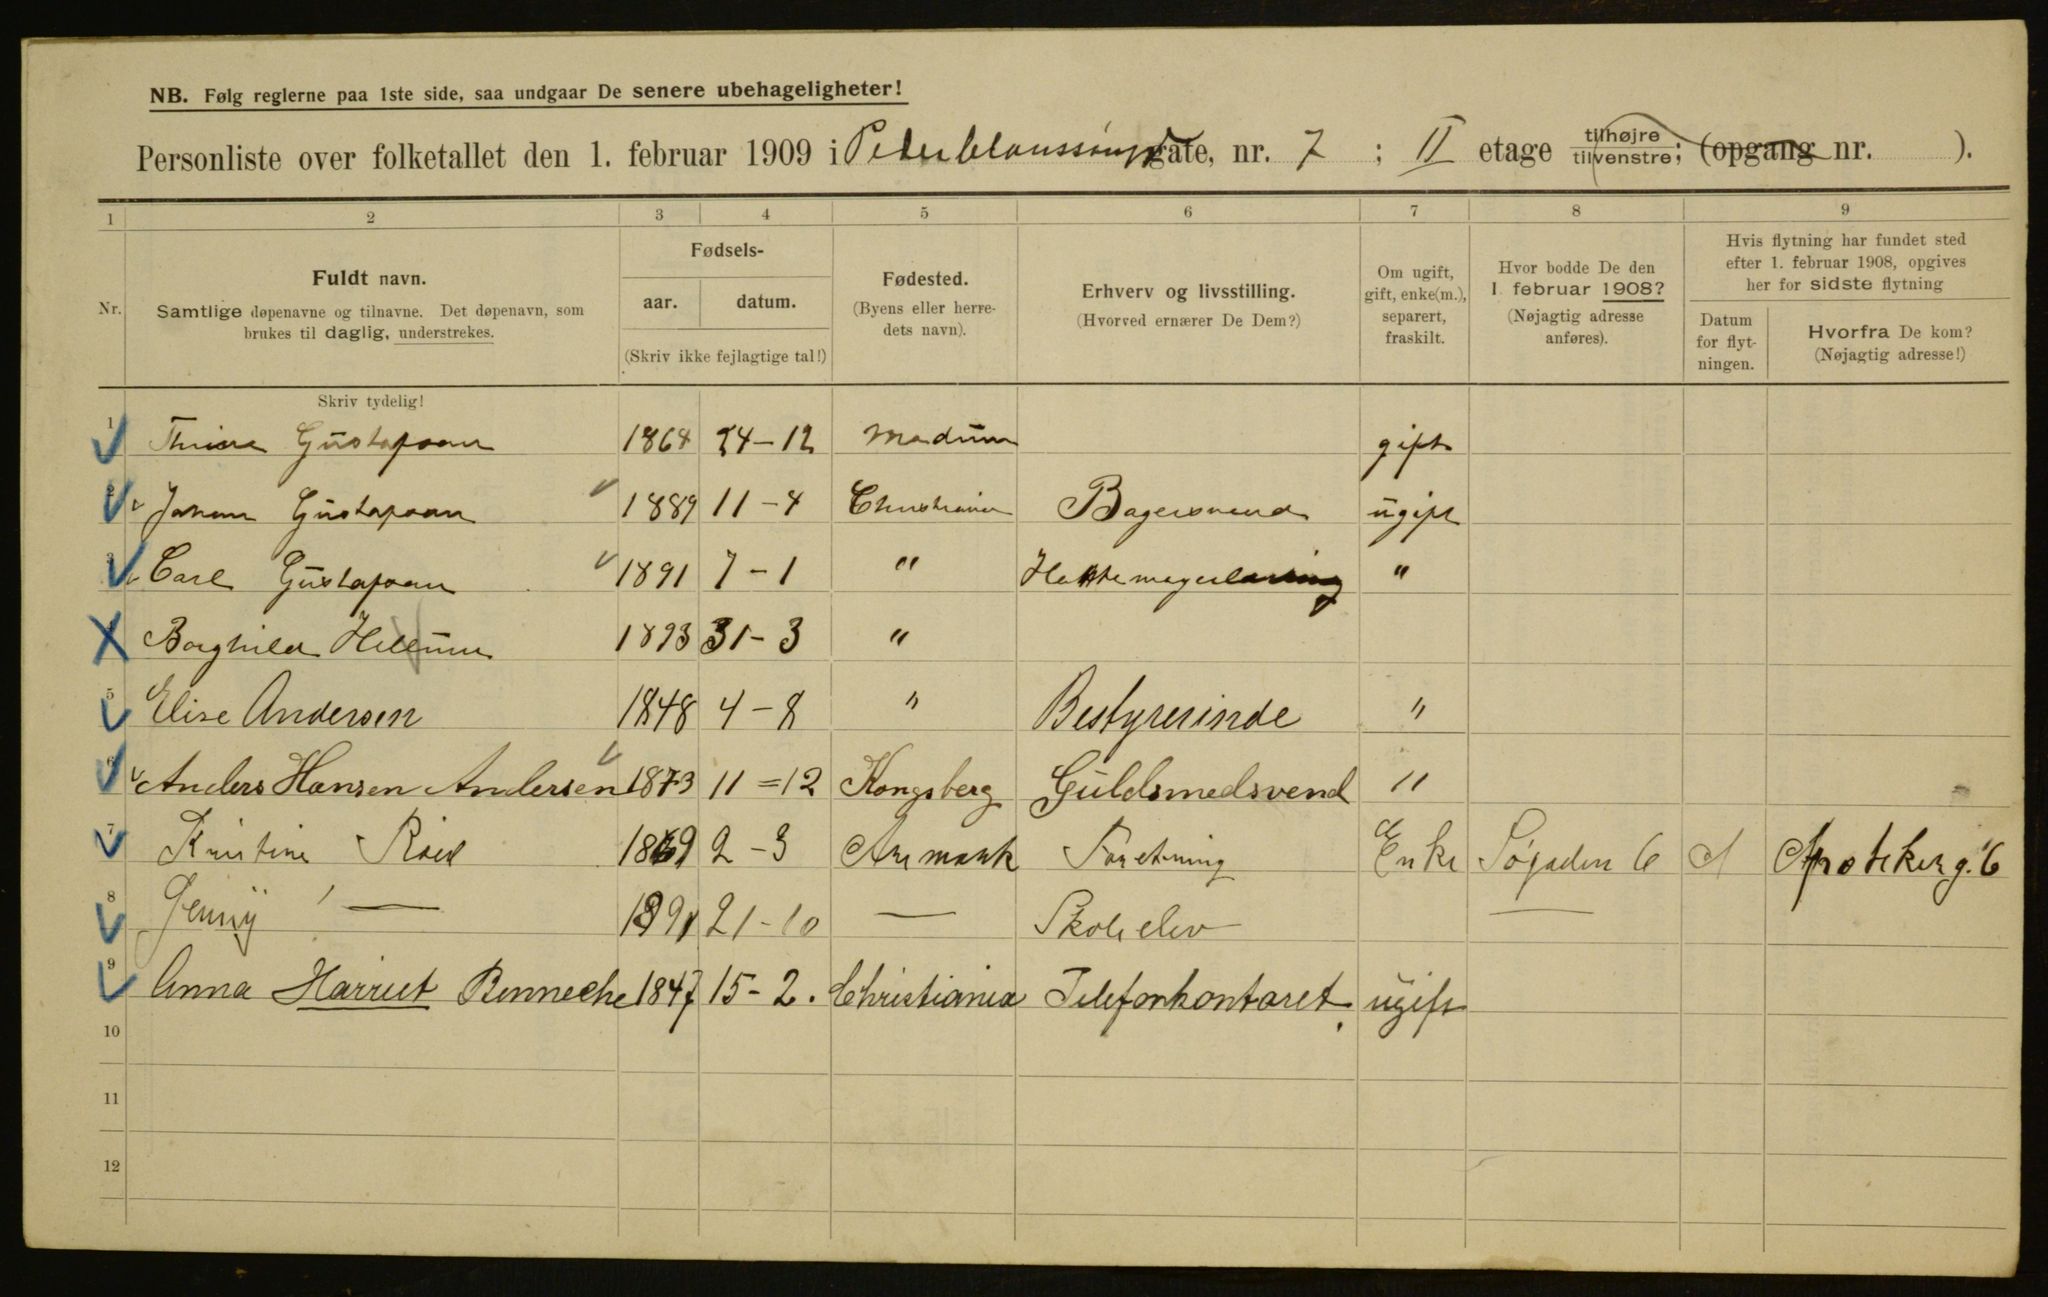 NB. Følg reglerne paa 1ste side, saa undgaar De senere ubehageligheter!
Personliste over folketallet den 1. februar 1909 i Peder Claussøns gate, nr. 7 ; II etage tilhøjre tilvenstre; (opgang nr. ).
1 2 3 4 5 6 7 8 9
Nr.
Fuldt navn.
Samtlige døpenavne og tilnavne. Det døpenavn, som
brukes til daglig, understrekes.
Fødsels-
aar. datum.
(Skriv ikke fejlagtige tal!)
Fødested.
(Byens eller herre-
dets navn).
Erhverv og livsstilling.
(Hvorved ernærer De Dem?)
Om ugift,
gift, enke(m.),
separert,
fraskilt.
Hvor bodde De den
1. februar 1908?
(Nøjagtig adresse
anføres).
Hvis flytning har fundet sted
efter 1. februar 1908, opgives
her for sidste flytning
Datum
for flyt-
ningen.
Hvorfra De kom?
(Nøjagtig adresse!)
Skriv tydelig!
1 Gustafsan 1868 24-12 Modum gift
2 Johan Gustafsan 1889 11-4 Christiania Bagersvend ugift
3 Carl Gustafsan 1891 7-1 " "
Borghild 1893 31-3 "
5 Elise Andersen 1848 4-8 " Bestyrerinde "
6 Anders Hansen Andersen 1873 11=12 Kongsberg Guldsmedsvend "
7 Kristine Røed 1869 2-3 Aremark Foretning Enke Søgaden 6 Apotekerg. 6
8 Jenny — 1891 21-10 — Skoleelev —
9 Anna Harriet Benneche 1847 15-2. Christiania Telefonkontoret. ugift
10
11
12